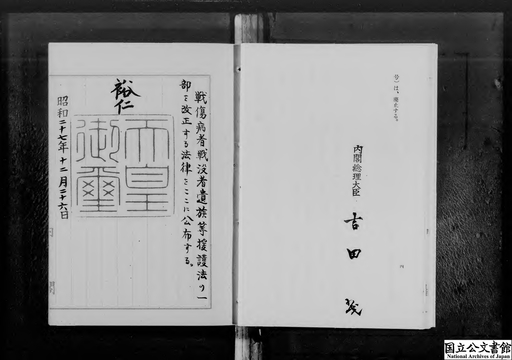 号)は、廃止する。
内閣総理大臣
吉田茂
戦傷病者戦没者遺族等援護法の一
部を改正する法律をここに公布する。
裕仁
天皇
御璽
昭和二十七年十二月二十六日
国立公文書館
National Archives of Japan